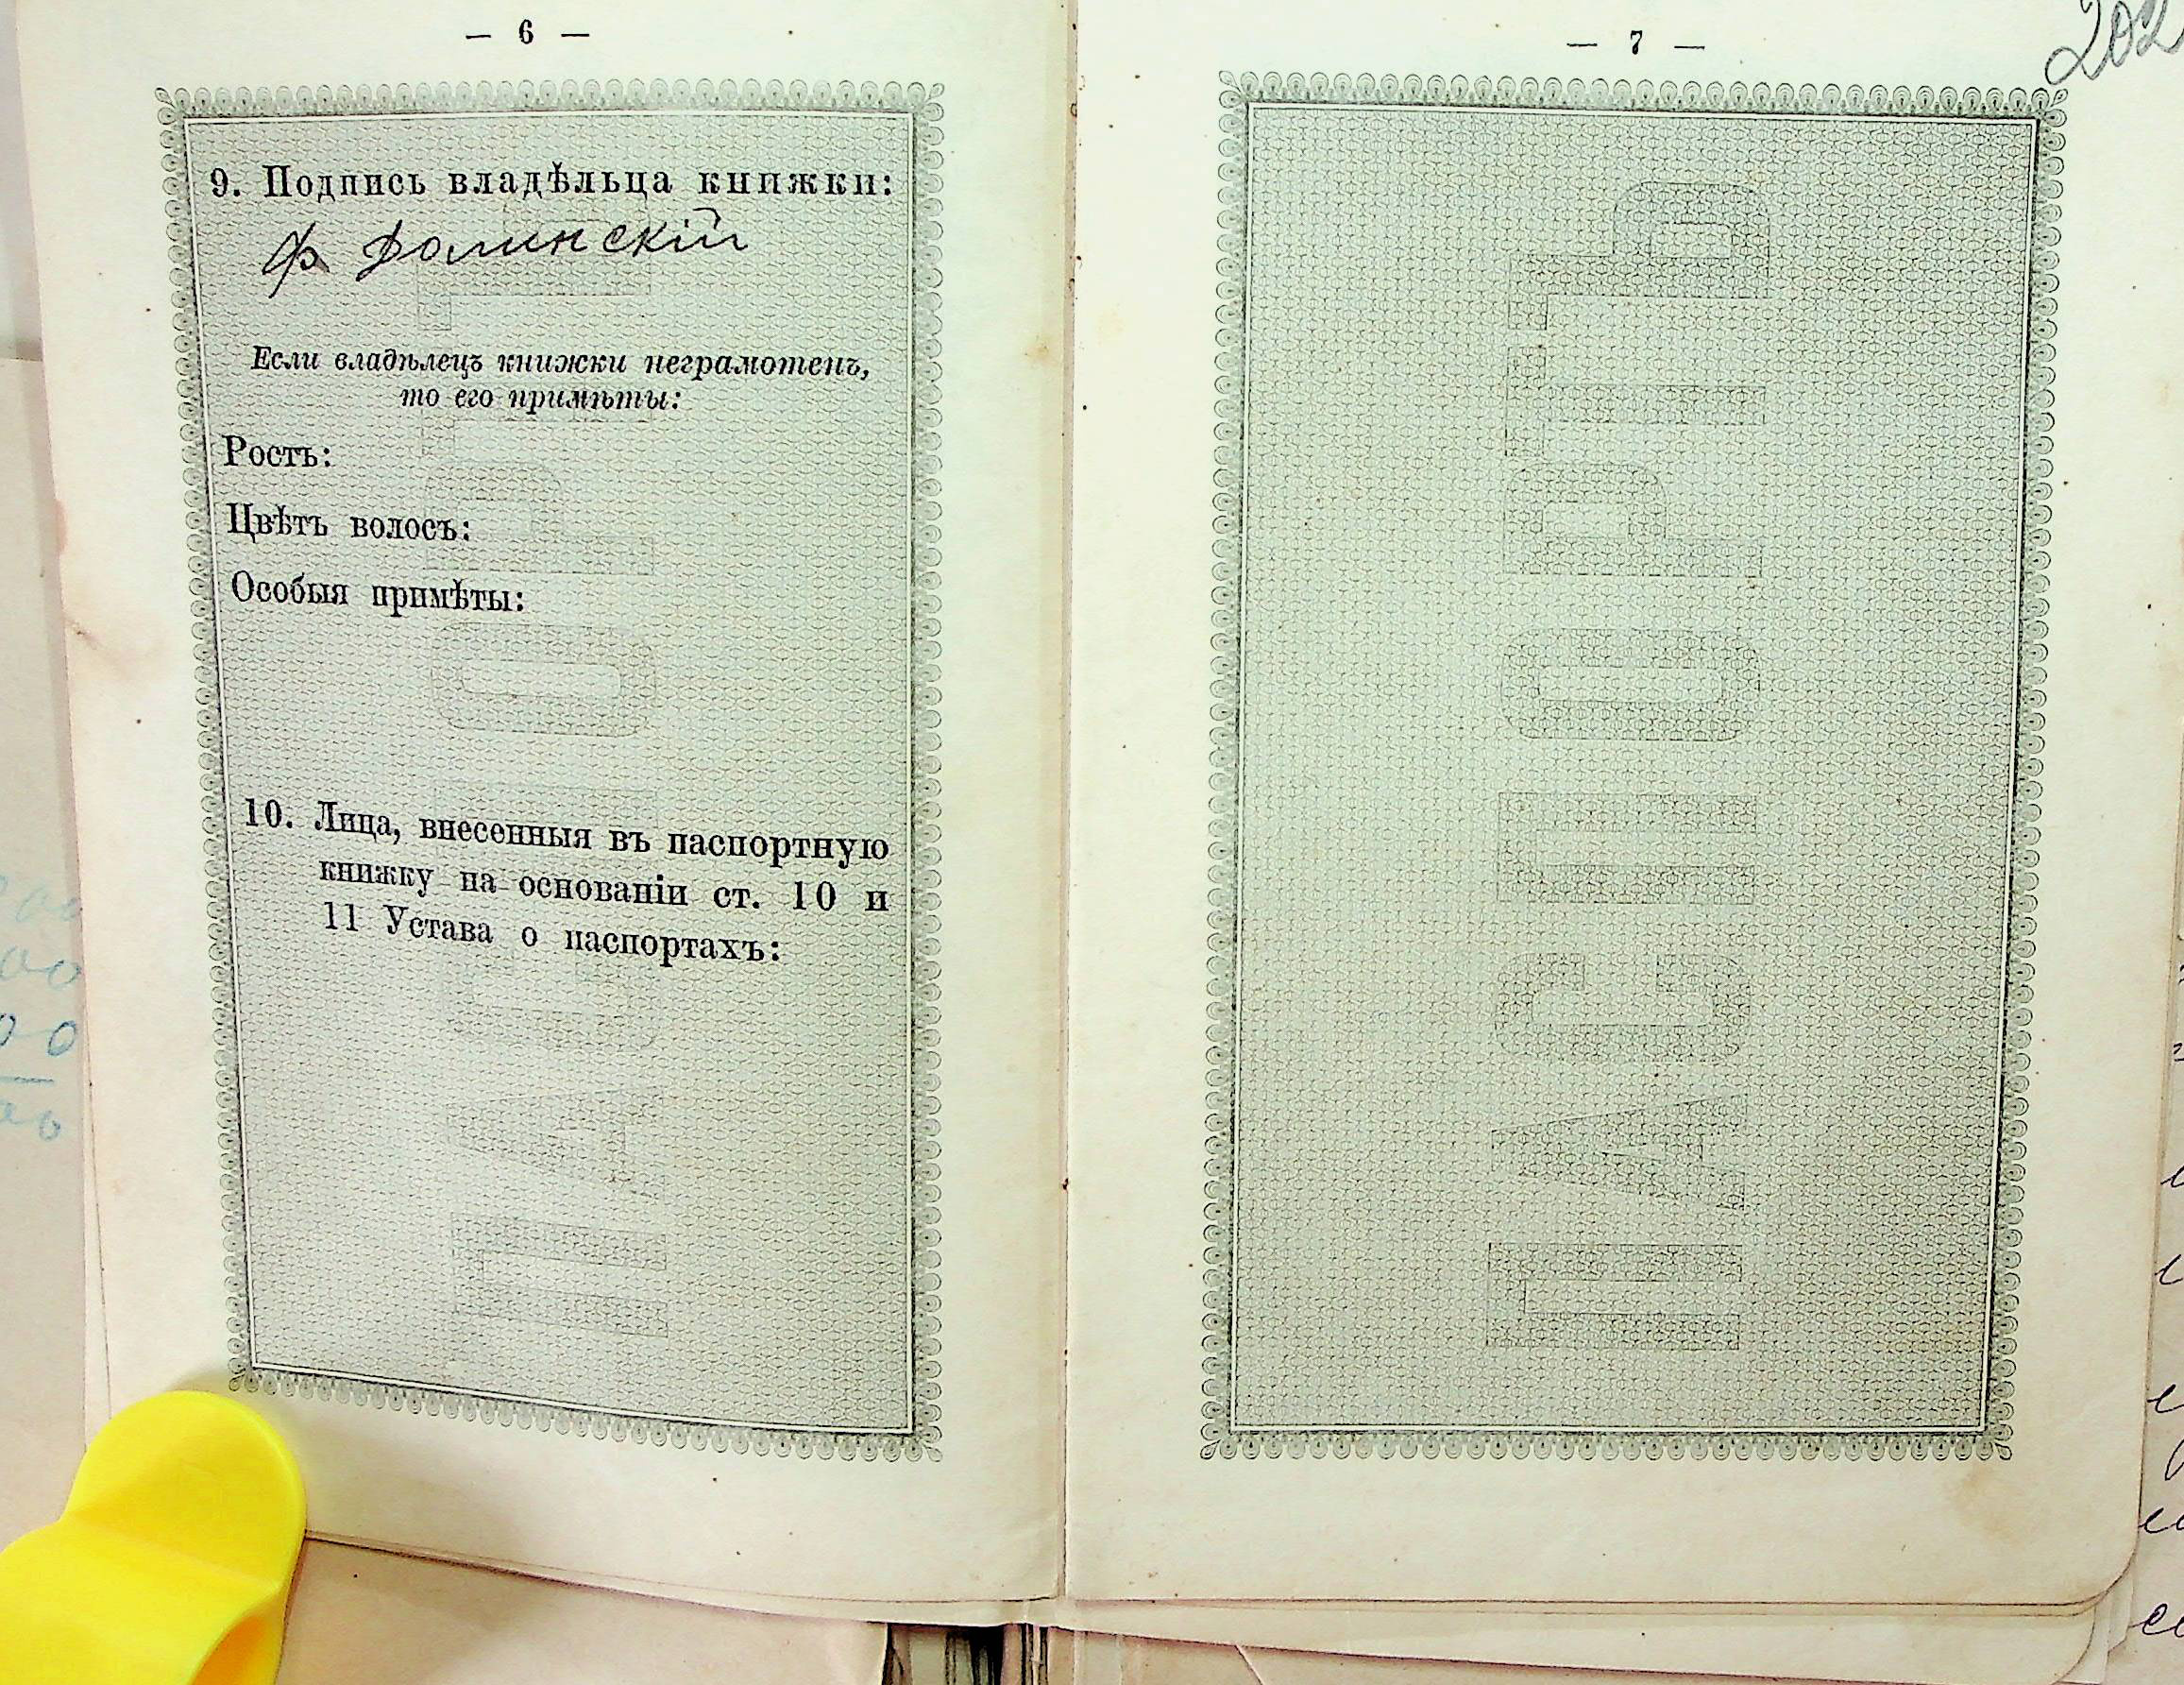 — 6 —
9. Подпись владѣльца книжки:
Ф Долинскій
Если владѣлецъ книжки неграмотенъ,
то его примѣты:
Ростъ:
Цвѣтъ волосъ:
Особыя примѣты:
10. Лица, внесенныя въ паспортную
книжку на основаніи ст. 10 и
11 Устава о паспортахъ:
ПАСПОРТЪ
— 7 —
202
ПАСПОРТЪ